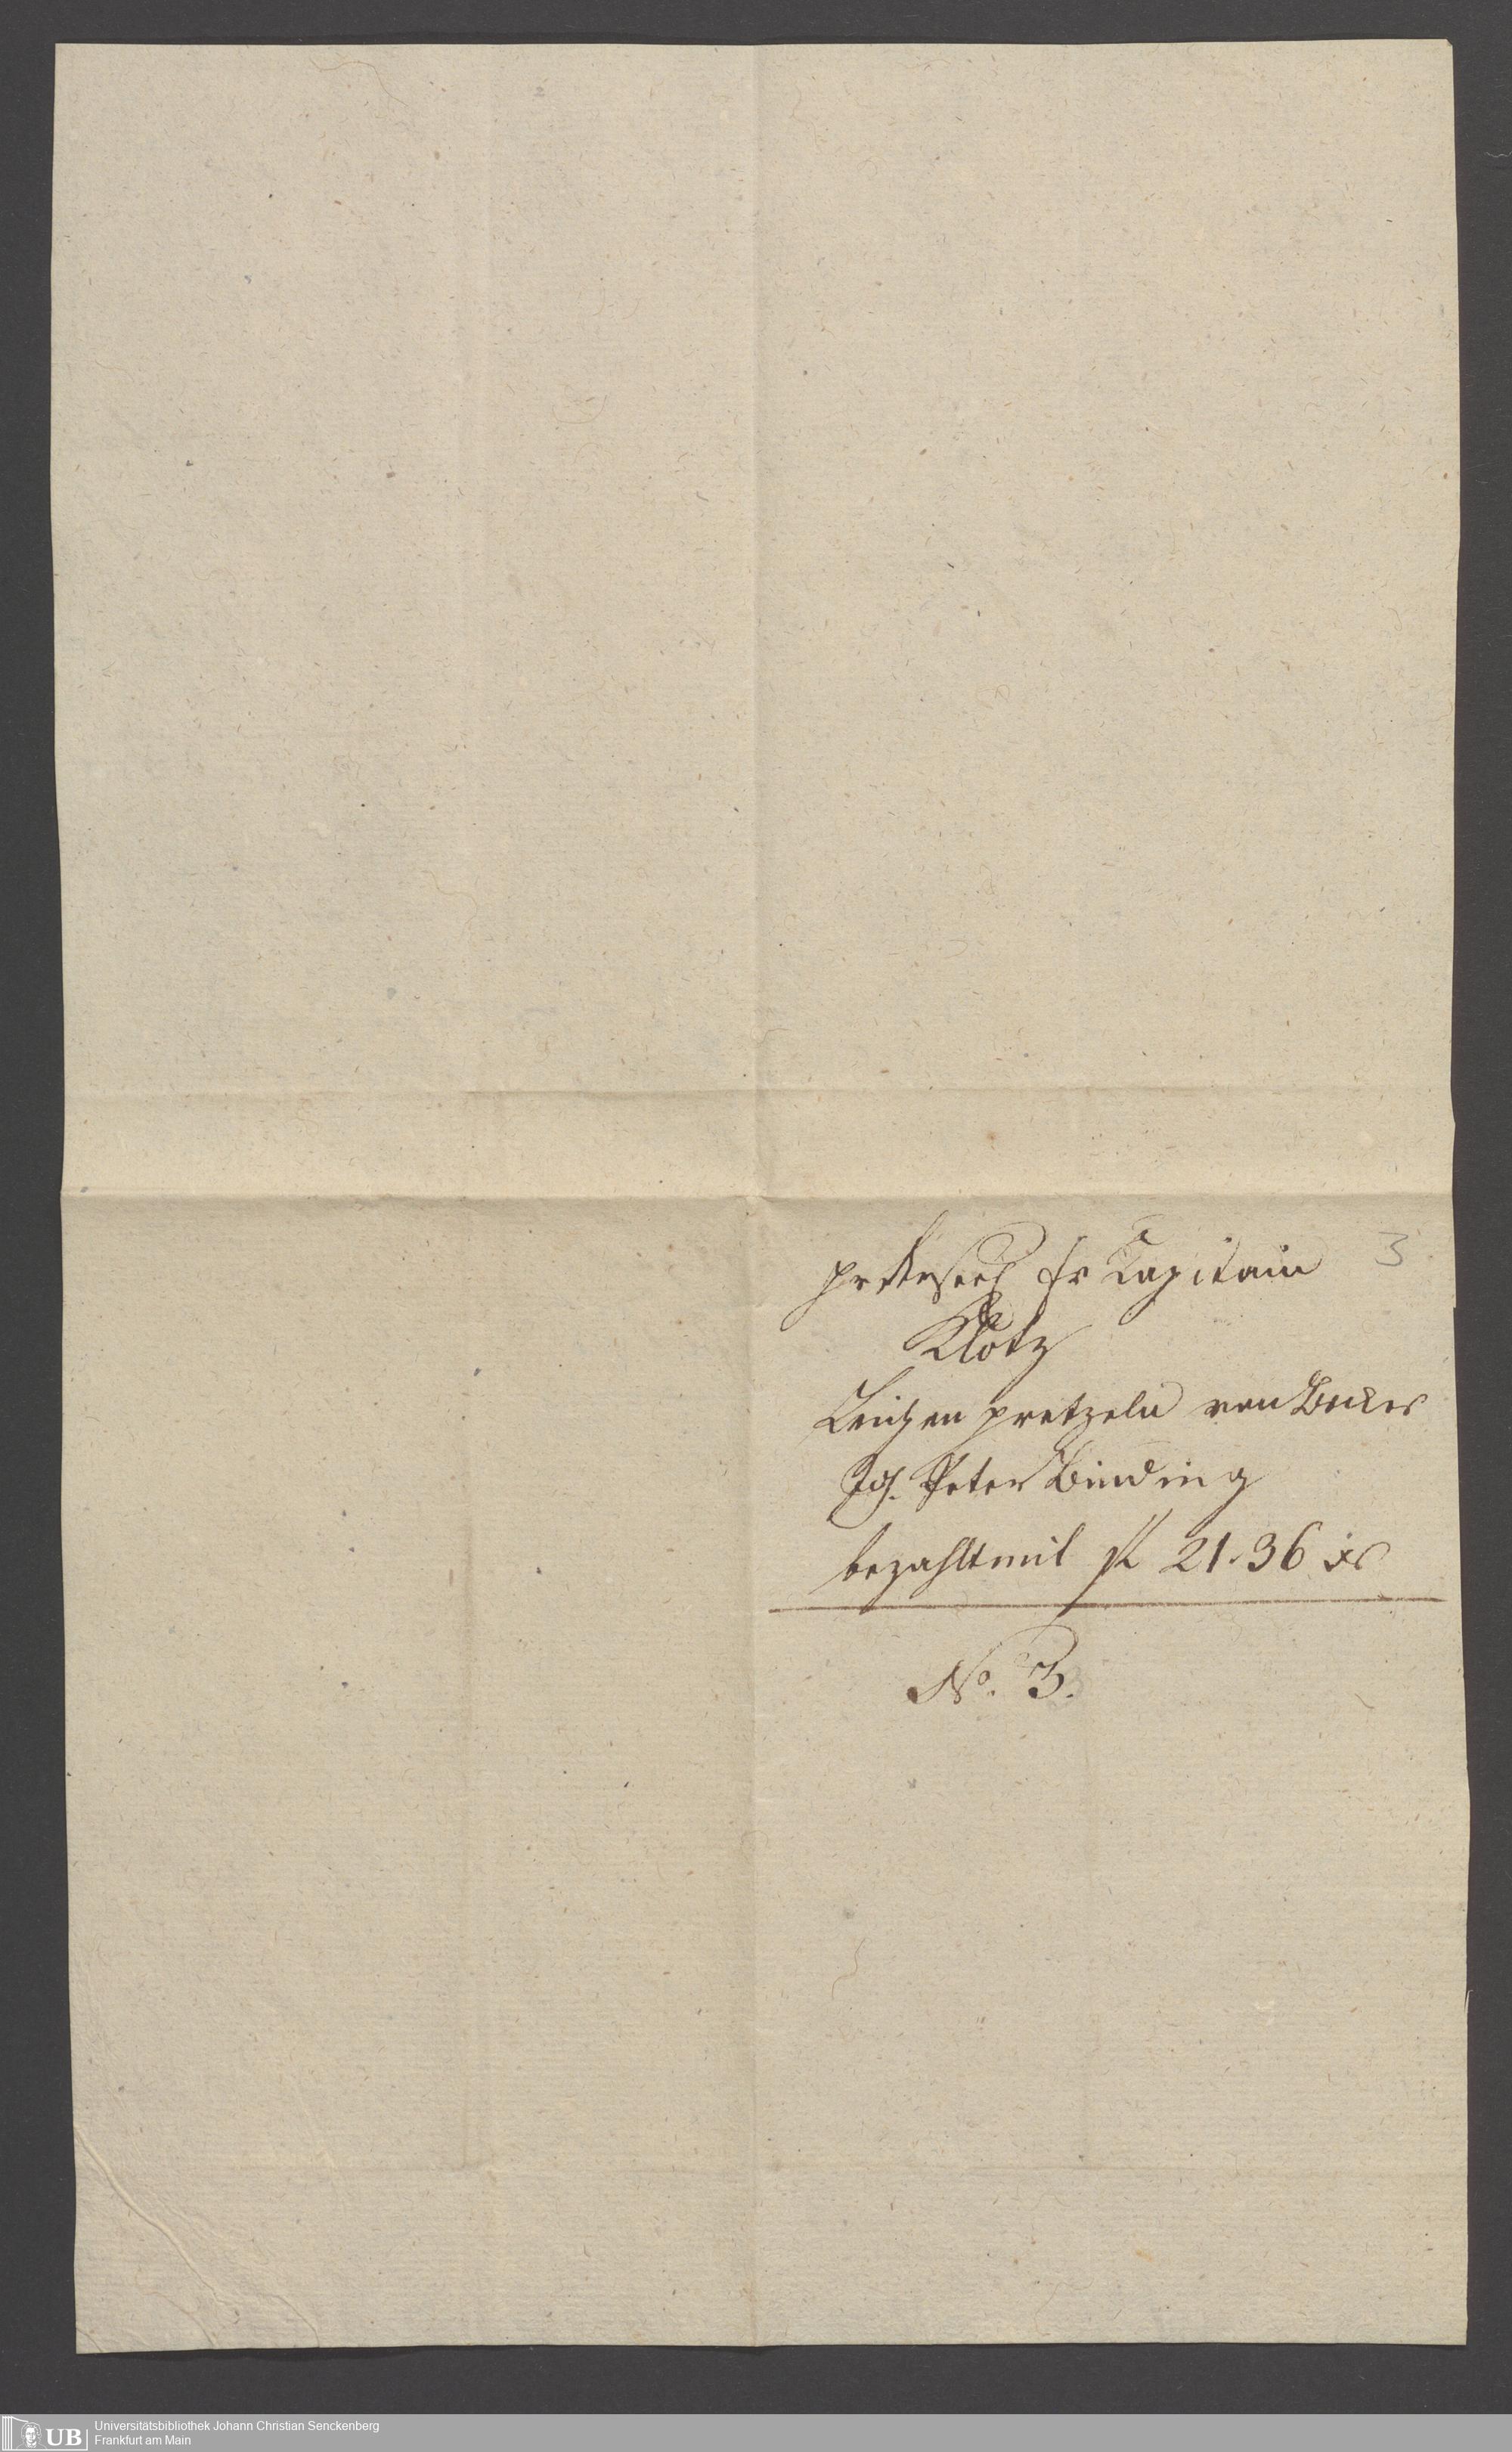 Hr Capitain 3
Klotz
Leichen pretzeln von Becker
Joh. Peter Binding
bezahlt mit fl 21.36 xr
No. 3.
UB Universitätsbibliothek Johann Christian Senckenberg
Frankfurt am Main